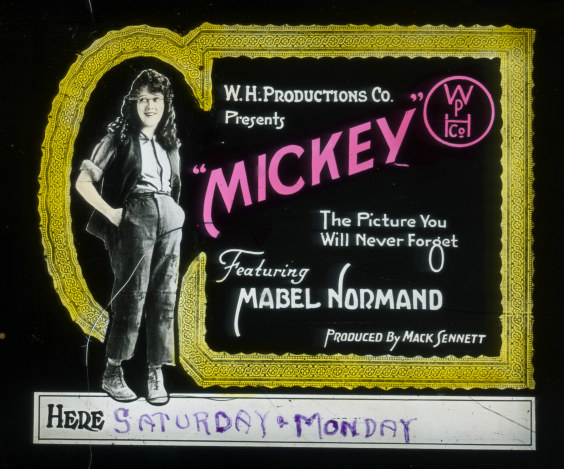 W.H. PRODUCTIONS CO.
Presents
"MICKEY"
W
P
H
Co
The Picture You
Will Never Forget
Featuring
MABEL NORMAND
PRODUCED BY MACK SENNETT
HERE SATURDAY & MONDAY